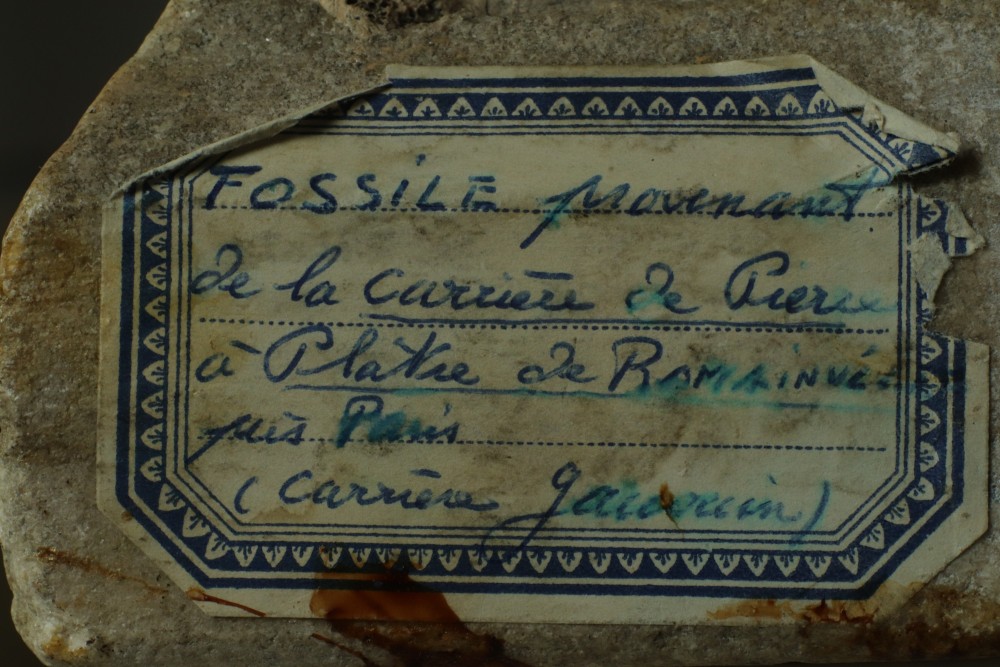 FOSSILE provenant
de la carrière de Pierre
à Plâtre de ROMAINVI
près Paris
(Carrière